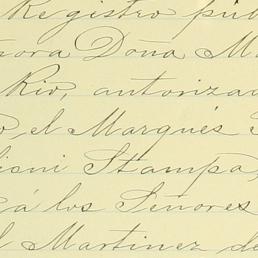 Registro púb
ñora Doña M
Rio, autoriza
o el Marqués
isni Stampa,
á los Señores
l Martinez de